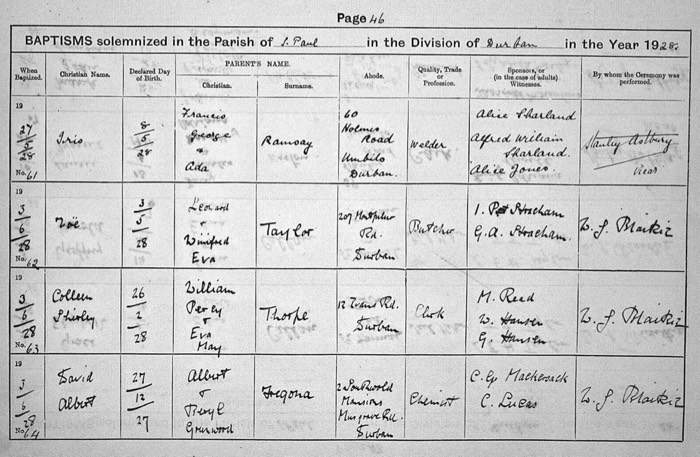 Page 46
BAPTISMS solemnized in the Parish of S. Paul in the Division of Durban in the Year 1928.
When Baptized.
Christian Name.
Declared Day of Birth.
PARENT'S NAME.
Christian.
Surname.
Abode.
Quality, Trade or Profession.
Sponsors, or (in the case of adults) Witnesses.
By whom the Ceremony was performed.
19
27/5/28
No. 61
Iris
8/5/28
Francis
George
+
Ada
Ramsay
60
Holmes
Road
Umbilo
Durban.
Welder
Alice Sharland
Alfred William
Sharland.
Alice Jones.
Stanley Astbury
Vicar
19
3/6/28
No. 62
Zoë
3/5/28
Leonard
+
Winifred
Eva
Taylor
207 Montpelier
Rd.
Durban
Butcher
Strachan
G.A. Strachan.
19
3/6/28
No. 63
Colleen
Shirley
26/2/28
William
Percy
+
Eva
May
Thorpe
Rd.
Durban
Clerk
M. Reed
W. Hansen
G. Hansen
19
3/6/28
No. 64
David
Albert
27/12/27
Albert
+
Beryl
Tregona
Mansions
Musgrave Rd.
Durban
Chemist
C. Lucas